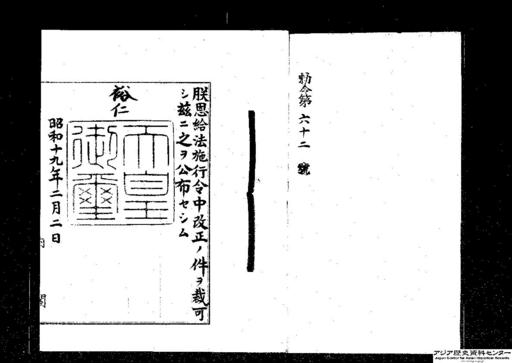 勅令第六十二號
朕恩給法施行令中改正ノ件ヲ裁可
シ茲ニ之ヲ公布セシム
裕仁
天皇御璽
昭和十九年二月二日
内閣
アジア歴史資料センター
Japan Center for Asian Historical Records